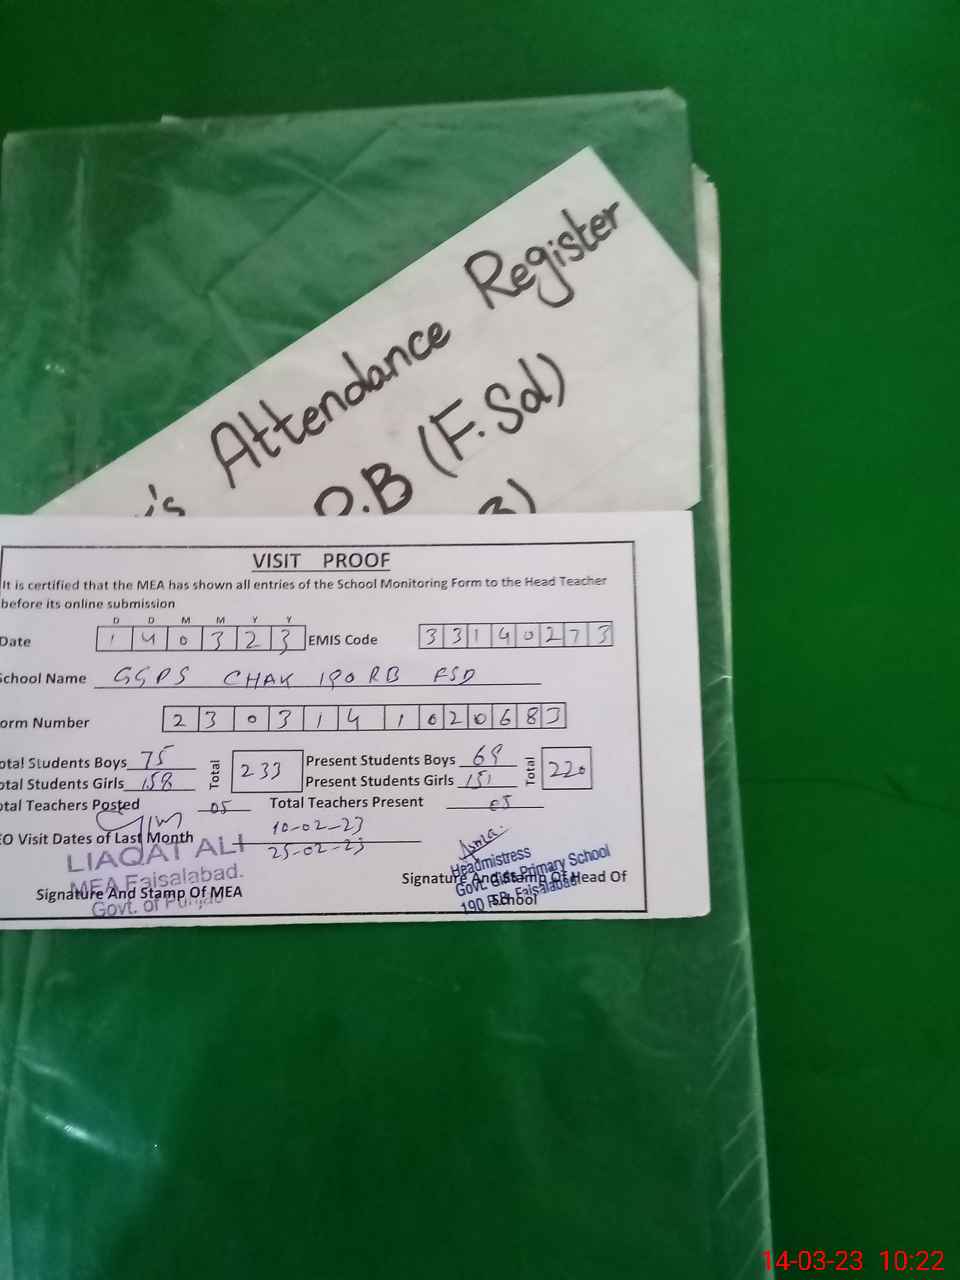 's Attendance Register
R.B (F.Sd)
VISIT PROOF
It is certified that the MEA has shown all entries of the School Monitoring Form to the Head Teacher
before its online submission
D D M M Y Y
Date 1 4 0 3 2 3 EMIS Code 3 3 1 4 0 2 7 3
School Name GGPS CHAK 190 RB FSD
orm Number 2 3 0 3 1 4 1 0 2 0 6 8 3
otal Students Boys 75 Total 233 Present Students Boys 69 Total 220
otal Students Girls 158 Present Students Girls 151
otal Teachers Posted 05 Total Teachers Present 05
EO Visit Dates of Last Month 10-02-23
25-02-23
LIAQAT ALI
MEA Faisalabad.
Govt. of Punjab
Signature And Stamp Of MEA
Asma
Headmistress
Govt. Girls Primary School
190 R.B. Faisalabad
Signature And Stamp Of Head Of
School
14-03-23 10:22